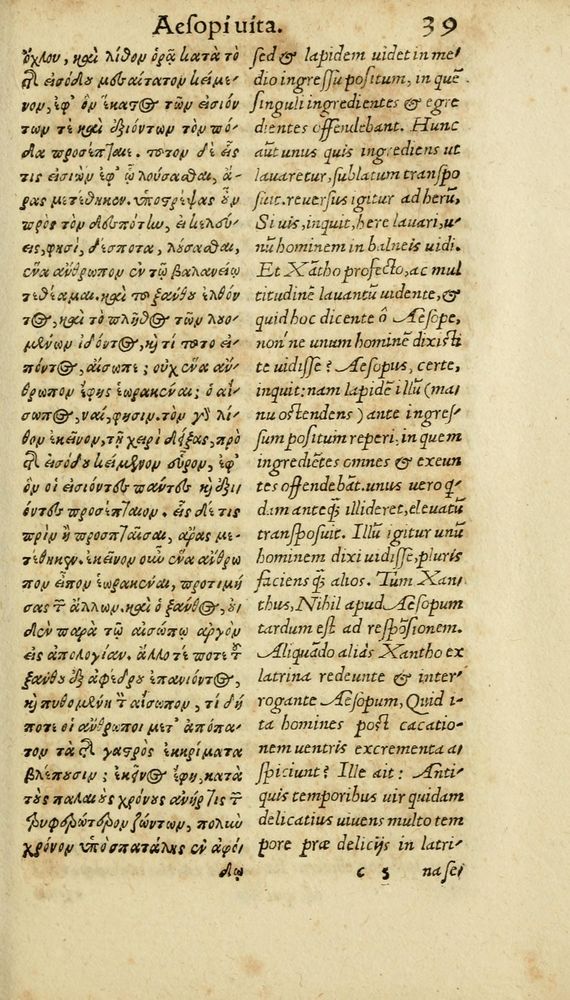 Aesopi uita. 39
ὄχλου, καὶ λίθον ὁρᾷ κατὰ τὸ
τῆς εἰσόδου μεσαίτατον κείμε/
νον, ἐφ' ὃν ἕκαστος τῶν εἰσιόν
των τὲ καὶ ἐξιόντων τὸν πό/
δα προσέπταιε. τοῦτον δὲ εἷς
τις εἰσιὼν ἐφ' ᾧ λούσασθαι, ἄ/
ρας μετέθηκεν. ὑποστρέψας οὖν
πρὸς τὸν δεσπότην, εἰ κελεύ/
εις, φησὶ, δέσποτα, λούσασθαι,
ἕνα ἄνθρωπον ἐν τῷ βαλανείῳ
τεθέαμαι. καὶ τοῦ ξάνθου ἐλθόν
τος, καὶ τὸ πλῆθος τῶν λουο/
μένων ἰδόντος, καὶ τί τοῦτο εἰ/
πόντος, αἴσωπε; οὐχ ἕνα ἄν/
θρωπον ἔφης ἑωρακέναι; ὁ αἴ/
σωπος, ναί, φησιν. τὸν γὰρ λί/
θον ἐκεῖνον, τῇ χειρὶ δείξας, πρὸ
τῆς εἰσόδου κείμενον εὗρον, ἐφ'
ὃν οἱ εἰσιόντες πάντες καὶ ἐξι
όντες προσέπταιον. εἷς δέ τις
πρὶν ἢ προσπταῖσαι, ἄρας με/
τέθηκεν. ἐκεῖνον οὖν ἕνα ἄνθρω
πον εἶπον ἑωρακέναι, προτιμή
σας τῶν ἄλλων. καὶ ὁ ξάνθος, οὐ
δὲν παρὰ τῷ αἰσώπῳ ἀργὸν
εἰς ἀπολογίαν. ἄλλοτέ ποτε τοῦ
ξάνθου ἐξ ἀφέδρου ἐπανιόντος,
καὶ πυθομένου τὸν αἴσωπον, τί δή
ποτε οἱ ἄνθρωποι μετ' ἀπόπα/
τον τὰ τῆς γαστρὸς ἐκκρίματα
βλέπουσιν; ἐκεῖνος ἔφη, κατὰ
τοὺς παλαιοὺς χρόνους ἀνήρ τις
τρυφερώτερον ζώντων, πολὺν
χρόνον ὑπὸ σπατάλης ἐν ἀφό/
δῳ
sed & lapidem uidet in me/
dio ingressũ positum, in quẽ
singuli ingredientes & egre
dientes offendebant. Hunc
aũt unus quis ingrediens ut
lauaretur, sublatum transpo
suit. reuersus igitur ad herũ,
Si uis, inquit, here lauari, u/
nũ hominem in balneis uidi.
Et Xãtho profecto, ac mul
titudinẽ lauantũ uidente, &
quid hoc dicente ô Aesope,
non' ne unum hominẽ dixisti
te uidisse? Aesopus, certe,
inquit: nam lapidẽ illũ (ma/
nu ostendens) ante ingres/
sum positum reperi, in quem
ingrediẽtes omnes & exeun
tes offendebãt. unus uero q̃/
dam anteq̃ illideret, eleuatũ
transposuit. Illũ igitur unũ
hominem dixi uidisse, pluris
faciens q̃ alios. Tũm Xan/
thus, Nihil apud Aesopum
tardum est ad respõsionem.
Aliquãdo aliâs Xantho ex
latrina redeunte & inter/
rogante Aesopum, Quid i/
ta homines post cacatio/
nem uentris excrementa a/
spiciunt? Ille ait: Anti/
quis temporibus uir quidam
delicatius uiuens multo tem
pore præ delicijs in latri/
c 5 na se/